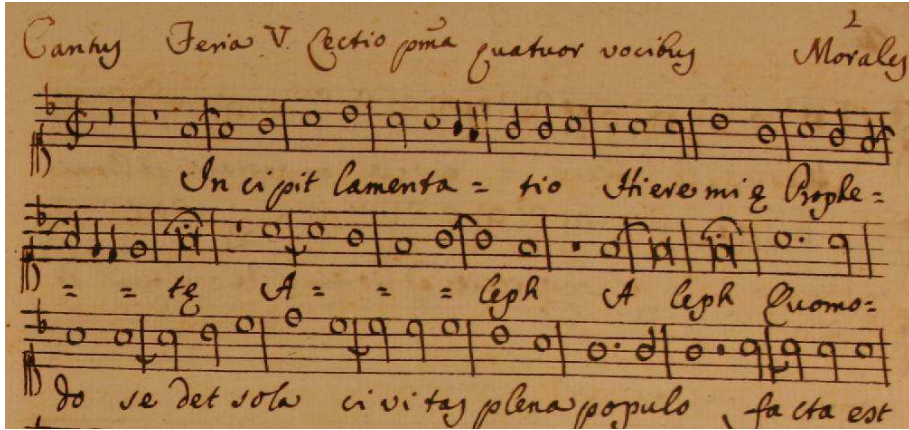 2
Cantus Feria V. Lectio pma quatuor vocibus Morales
In ci pit lamenta = tio Hiere mię Prophe =
= = tę A = = = leph A leph Quomo =
do se det sola ci vi tas plena populo, fa cta est